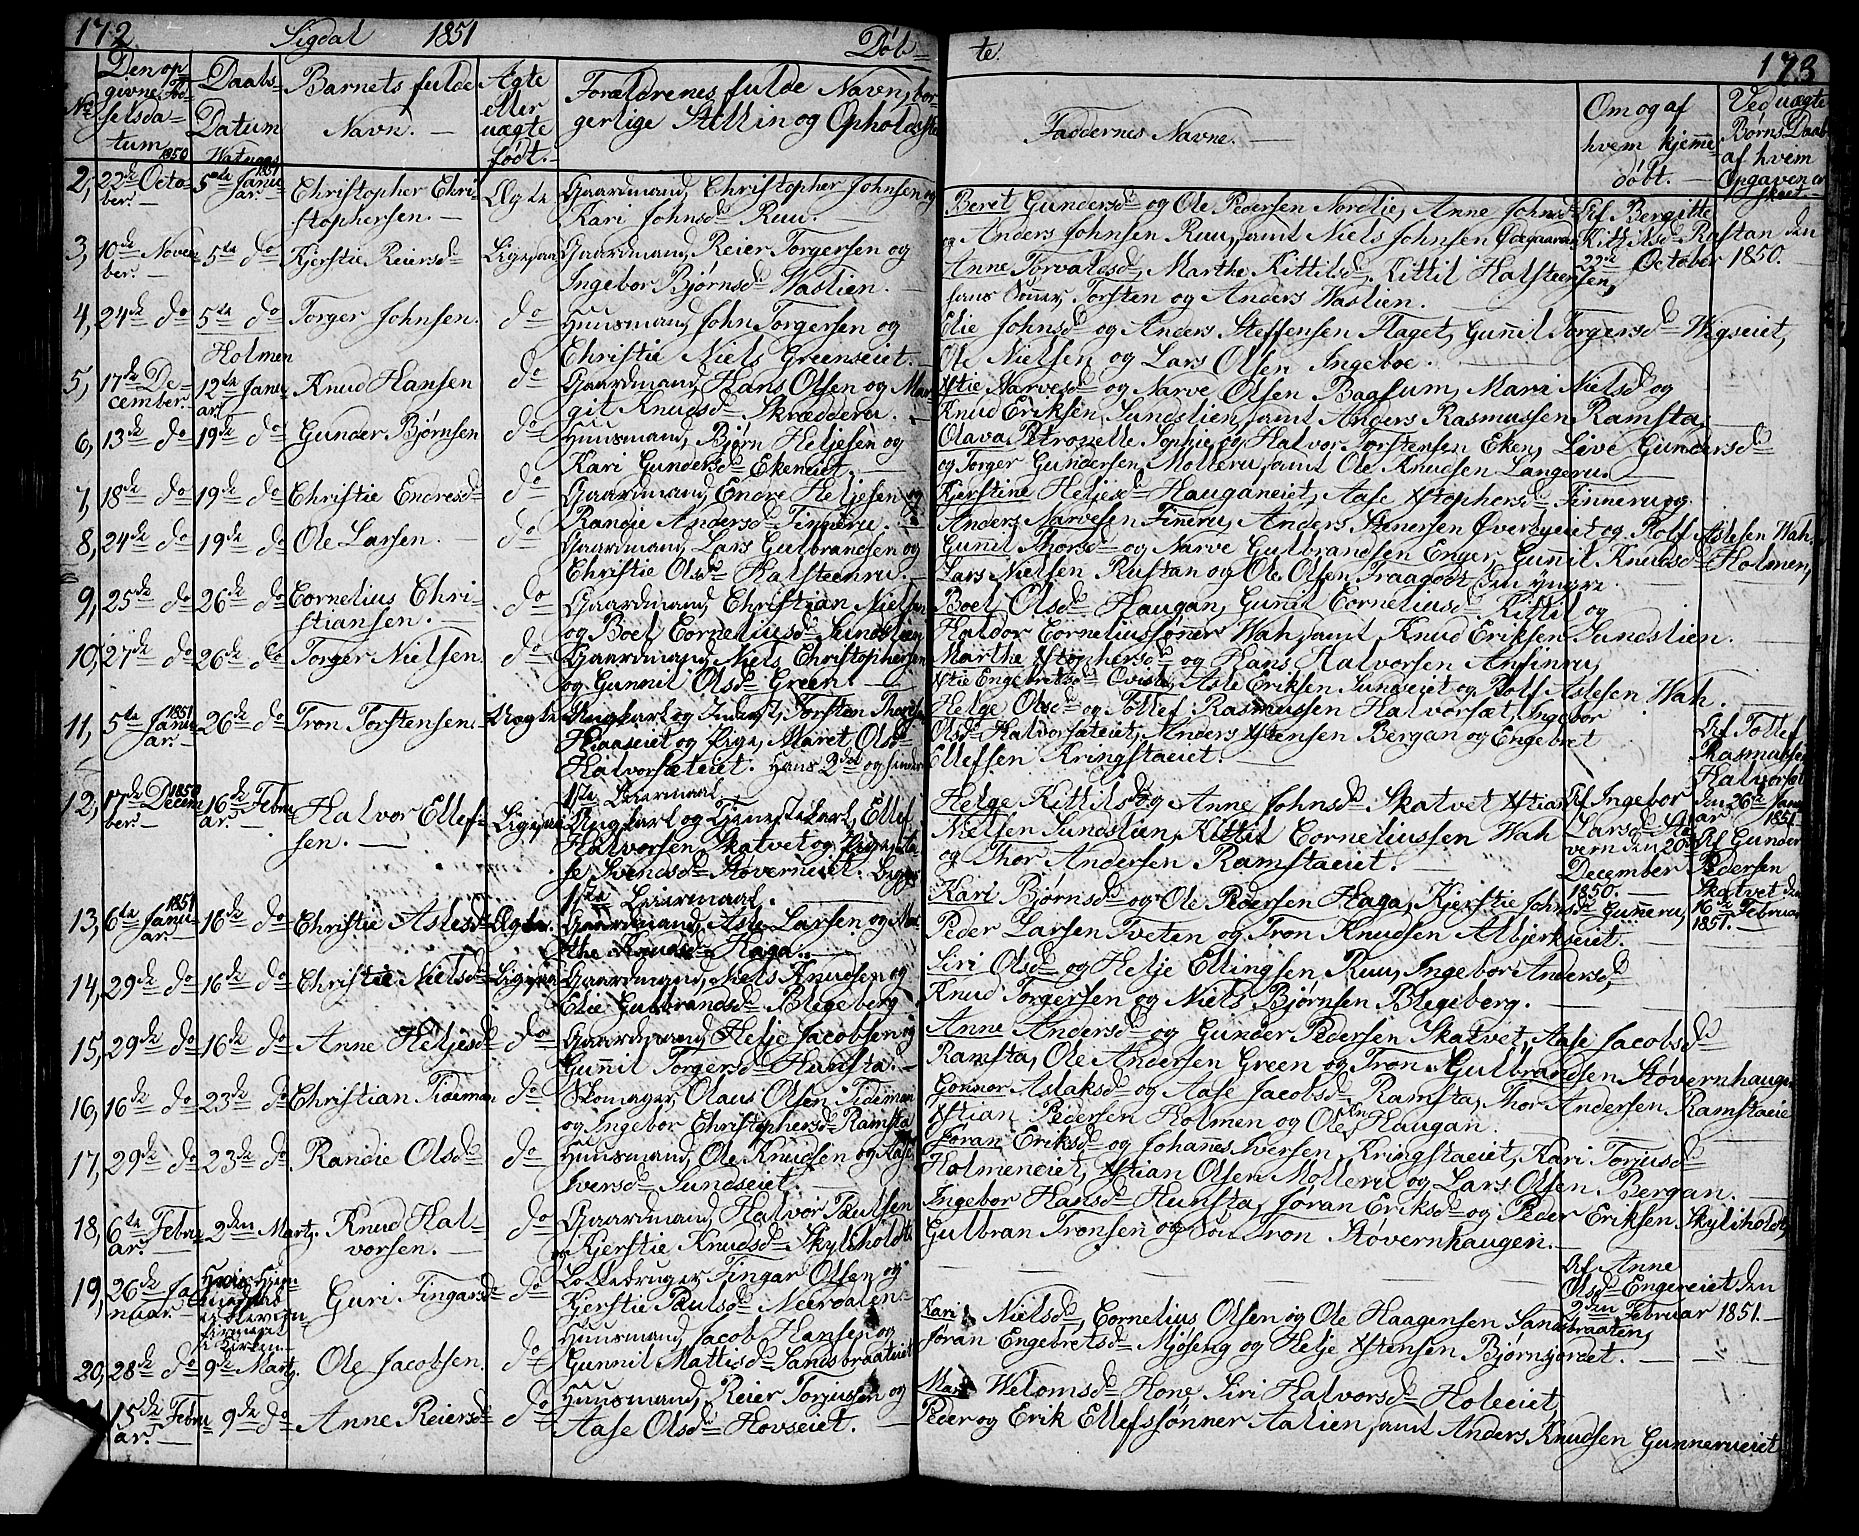 172. Sigdal 1851 Døb-
te. 173
No
Den op
givne Fød-
selsda-
tum
1850
Daabs
Datum
1851
Barnets fulde
Navn. —
Ægte
eller
uægte
født. —
Forældrenes fulde Navn, bor-
gerlige Stilling og Opholdsste
Faddernes Navne. —
Om og af
hvem hjemme-
døbt. —
Ved uægte
Børns Daab
af hvem
Opgaven er
skeet —
2, 22de Octo- 5te Janu- Christopher Chri- Ægte Gaardmand Christopher Johnsen og
ber. — ar. — stophersen. — Kari Johnsd. Ruu. —
Beret Gundersd. og Ole Pedersen Nordlie, Anne Johnsd. Af Bergitte
og Anders Johnsen Ruu, samt Niels Johnsen Ødegaarden Kittilsd. Rustan den
22de October 1850. —
3, 10de Novem 5te do Kjerstie Reiersd. Ligesaa Gaardmand Reier Torgersen og
ber. — Ingebor Bjørnsd. Waslien. —
Anne Torvalsd., Marthe Kittilsd., Kittil Halsteensen,
hans Sønner, Torsten og Anders Waslien.
4, 24de do 5te do Torger Johnsen. do Huusmand John Torgersen og
Holmen Christie Niels Greenseiet.
Elie Johnsd. og Anders Steffensen Flaget, Gunnil Torgersd. Wigseiet,
Ole Nielsen og Lars Olsen Ingeboe. —
5, 17de De- 12te Janu- Knud Hansen do Gaardmand Hans Olsen og Mar-
cember. ar. — git Knudsd. Skrædderu. —
Xstie Narvesd. og Narve Olsen Baasum, Mari Nielsd. og
Knud Eriksen Sundslien, samt Anders Rasmussen Ramsta,
6, 13de do 19de do Gunder Bjørnsen do Huusmand Bjørn Heljesen og
Kari Gundersd. Ekeneiet. —
Olava Petronelle Sophie, og Halvor Torstensen Eken, Live Gundersd.
og Torger Gundersen Molleru, samt Ole Knudsen Langeru.
7, 18de do 19de do Christie Endresd. do Gaardmand Endre Heljesen og
Randie Andersd. Finneru. —
Kjerstine Heljesd. Hauganeiet, Aase Xstophersd. Finneru og
Anders Narvesen Finneru, Anders Stenersen Øverbyeiet og Rolf Aslesen Wah.
8, 24de do 19de do Ole Larsen. — do Gaardmand Lars Gulbrandsen og
Christie Olsd. Halsteenru.
Gunil Thorsd. og Narve Gulbrandsen Enger, Gunnil Knudsd. Holmen,
Lars Nielsen Rustan og Ole Olsen Fraagodt den yngre.
9, 25de do 26de do Cornelius Chri- do Gaardmand Christian Nielsen
stiansen. — og Boel Corneliusd. Sundslien
Boel Olsd. Haugan, Gunnil Corneliusd. Kittil og
Haldor Corneliussønner Wah, samt Knud Eriksen Sundslien. —
10, 27de do 26de do Torger Nielsen. do Gaardmand Niels Christophersen
og Gunnil Olsd. Green. —
Marthe Xstophersd. og Hans Halvorsen Ansinru,
Xstie Engebretsd. Qviste, Asle Eriksen Sundeiet og Rolf Aslesen Wah.
11, 5te Janu- 26de do Tron Torstensen. Uægte Ungkarl og Inderst, Torsten
1851 ar. — Haaseiet og Pige, Maret Olsd.
Halvorsæteiet. Hans 2det og hendes
1ste Leiermaal.
Helge Olsd. og Tollef Rasmussen Halvorsæt, Ingebor
Olsd. Halvorsæteiet, Anders Xstensen Bergan og Engebret
Ellefsen Kringstaeiet.
Af Tollef
Rasmussen
Halvorsæt
den 26de Janu-
ar 1851
12, 17de Decem 16de Febru- Halvor Ellef- Ligesaa Ungkarl og Tjenestekarl, Ellef
1850 ber. — ar. — sen. — Halvorsen Skatvet og Pige, Aa-
se Svendsd. Støverneiet. Begges
1ste Leiermaal.
Helge Kittilsd. og Anne Johnsd. Skatvet, Xstian
Nielsen Sundslien, Kittil Corneliussen Wah
og Thor Andersen Ramstaeiet. —
Af Ingebor
Larsd. Stø-
vern den 20de
December
1850. —
Af Gunder
Pedersen
Skatvet den
16de Februar
1851. —
13, 6te Janu- 16de do Christie Aslesd. Ægte. Gaardmand, Asle Larsen og Mar-
1851 ar. — the Knudsd. Haga. —
Kari Bjørnsd. og Ole Pedersen Haga, Kjerstie Johnsd. Gunneru,
Peder Larsen Tveten og Tron Knudsen Albjerkseiet. —
14, 29de do 16de do Christie Nielsd. Ligesaa Gaardmand, Niels Knudsen og
Elie Gulbrandsd. Blegeberg
Siri Olsd. og Helje Ellingsen Ruu, Ingebor Andersd.,
Knud Torgersen og Niels Bjørnsen Blegeberg.
15, 29de do 16de do Anne Heljesd. do Gaardmand Helje Jacobsen og
Gunnil Torgersd. Hunsta. —
Anne Andersd. og Gunder Pedersen Skatvet, Aase Jacobsd.
Ramsta, Ole Andersen Green og Tron Gulbrandsen Støvernhaugen
16, 16de do 23de do Christian Tideman do Skomager Olaus Olsen Tideman
og Ingebor Christophersd. Ramsta
Gonnor Aslaksd. og Aase Jacobsd. Ramsta, Thor Andersen Ramstaeie
Xstian Pedersen Holmen og Ole Haugan.
17, 29de do 23de do Randie Olsd. do Huusmand, Ole Knudsen og Aase
Iversd. Sundseiet. —
Jøran Eriksd. og Johannes Iversen Kringstaeiet, Kari Torjusd.
Holmeneiet, Xstian Olsen Molleru og Lars Olsen Bergan. —
18, 6te Febru- 2den Marty. Knud Hal- do Gaardmand Halvor Paulsen
ar. — vorsen. — og Kjerstie Knudsd. Skyliholdt.
Ingebor Hansd. Hunsta, Jøran Eriksd. og Peder Eriksen Skyliholdt,
Gulbran Tronsen og Søn Tron Støvernhaugen. —
19, 26de Ja- Guri Fingarsd. do Lottebruger Fingar Olsen og
nuar. — Kjerstie Paulsd. Neerdalen —
Af Anne
Olsd. Engereiet den
2den Februar 1851. —
20, 28de do 9de Marty. Ole Jacobsen. do Huusmand Jacob Hansen og
Gunnil Mattisd. Sandsbraateiet
Kari Nielsd., Cornelius Olsen og Ole Haagensen Sandsbraaten,
Jøran Engebretsd. Mjøseng og Helje Xstensen Bjørnsjordet. —
15de Febru- 9de do Anne Reiersd. do Huusmand, Reier Torjussen og
ar. — Aase Olsd. Hovseiet. —
Mari Welomsd. Hone, Siri Halvorsd. Holeeiet,
Peder og Erik Ellefssønner Aalien, samt Anders Knudsen Gunnerueiet